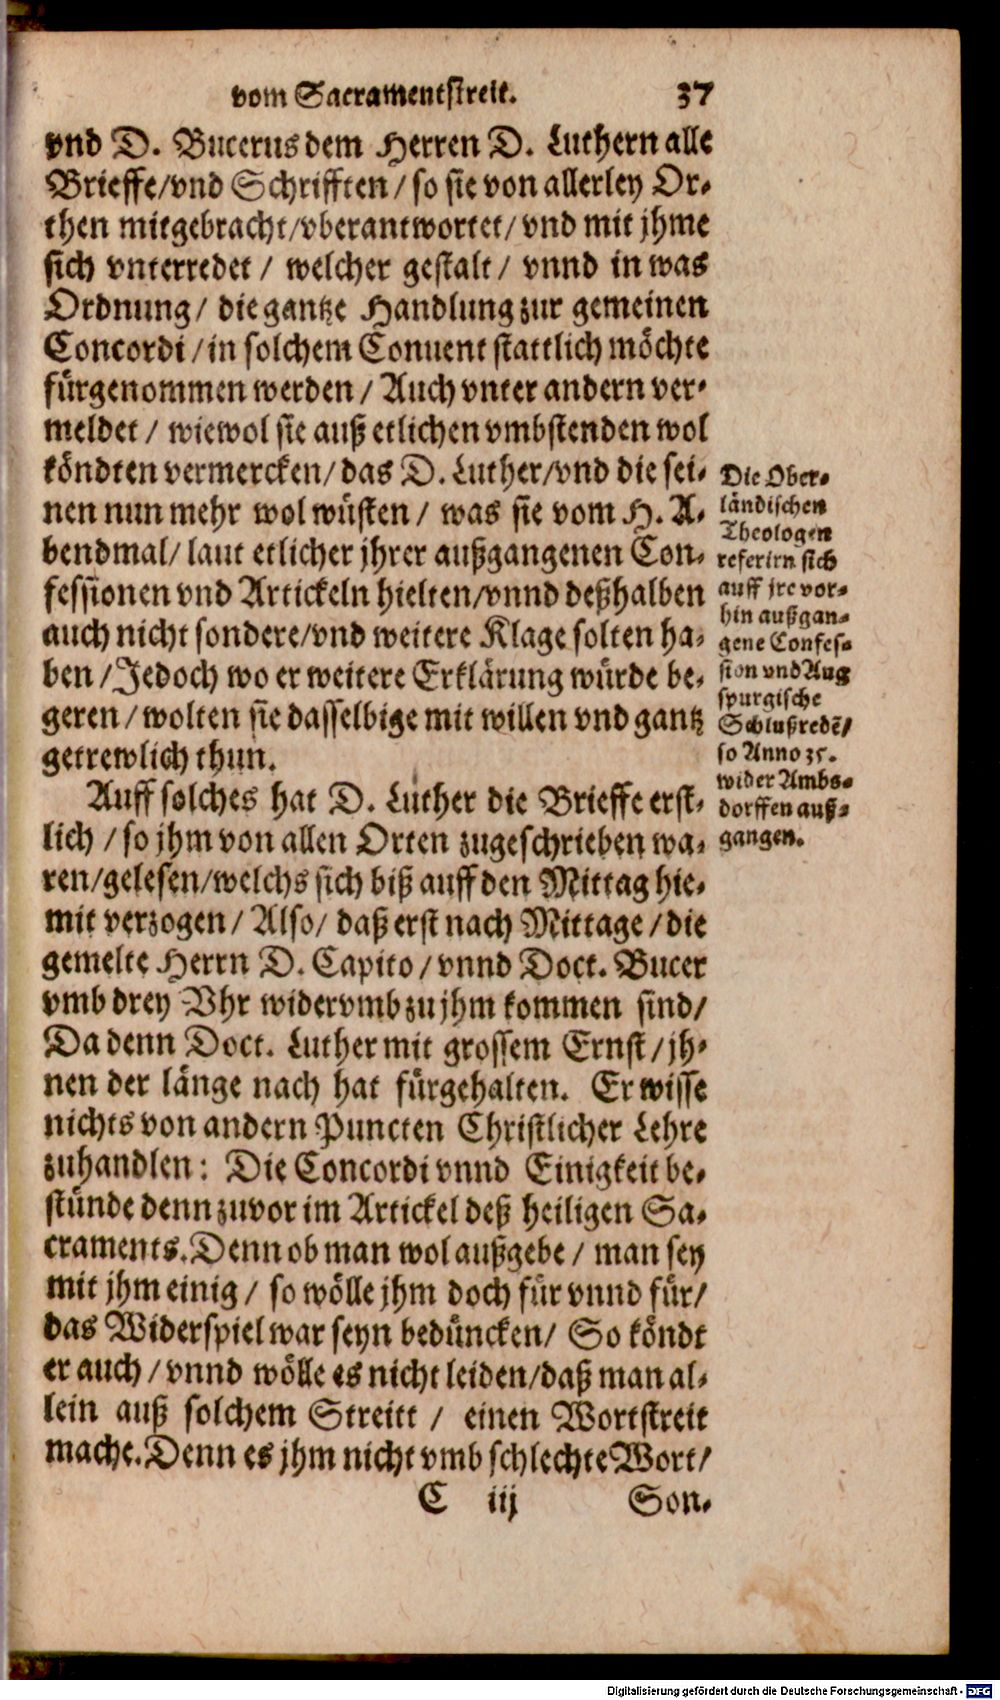 vom Sacramentstreit. 37
vnd D. Bucerus dem Herren D. Luthern alle
Brieffe/vnd Schrifften/so sie von allerley Or-
then mitgebracht/vberantwortet/vnd mit jhme
sich vnterredet/ welcher gestalt/ vnnd in was
Ordnung/ die gantze Handlung zur gemeinen
Concordi/in solchem Conuent stattlich möchte
fürgenommen werden/ Auch vnter andern ver-
meldet/ wiewol sie auß etlichen vmbstenden wol
köndten vermercken/das D. Luther/vnd die sei-
nen nun mehr wol wüsten/ was sie vom H. A-
bendmal/laut etlicher jhrer außgangenen Con-
fessionen vnd Artickeln hielten/vnnd deßhalben
auch nicht sondere/vnd weitere Klage solten ha-
ben/Jedoch wo er weitere Erklärung würde be-
geren/wolten sie dasselbige mit willen vnd gantz
getrewlich thun.
Die Ober-
ländischen
Theologen
referirn sich
auff jre vor-
hin außgan-
gene Confes-
sion vnd Aug
spurgische
Schlußredē/
so Anno 35.
wider Ambs-
dorffen auß-
gangen.
Auff solches hat D. Luther die Brieffe erst-
lich/so jhm von allen Orten zugeschrieben wa-
ren/gelesen/welchs sich biß auff den Mittag hie-
mit verzogen/ Also/ daß erst nach Mittage/die
gemelte Herrn D. Capito/vnnd Doct. Bucer
vmb drey Vhr widervmb zu jhm kommen sind/
Da denn Doct. Luther mit grossem Ernst/jh-
nen der länge nach hat fürgehalten. Er wisse
nichts von andern Puncten Christlicher Lehre
zuhandlen: Die Concordi vnnd Einigkeit be-
stünde denn zuvor im Artickel deß heiligen Sa-
craments. Denn ob man wol außgebe/ man sey
mit jhm einig/ so wölle jhm doch für vnnd für/
das Widerspiel war seyn bedüncken/ So köndt
er auch/vnnd wölle es nicht leiden/daß man al-
lein auß solchem Streitt/ einen Wortstreit
mache. Denn es jhm nicht vmb schlechte Wort/
C iij Son-
Digitalisierung gefördert durch die Deutsche Forschungsgemeinschaft - DFG